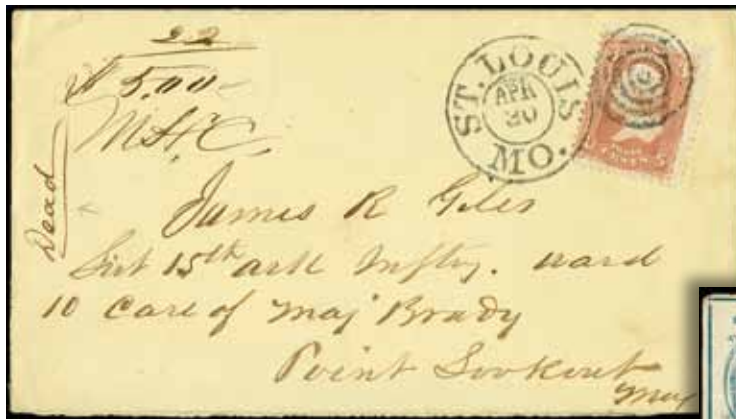 22
$5.00
M.H.C.
ST. LOUIS MO.
APR 20
Dead
James R Giles
15th ark Inftry. ward
10 Care of Maj Brady
Point Lookout